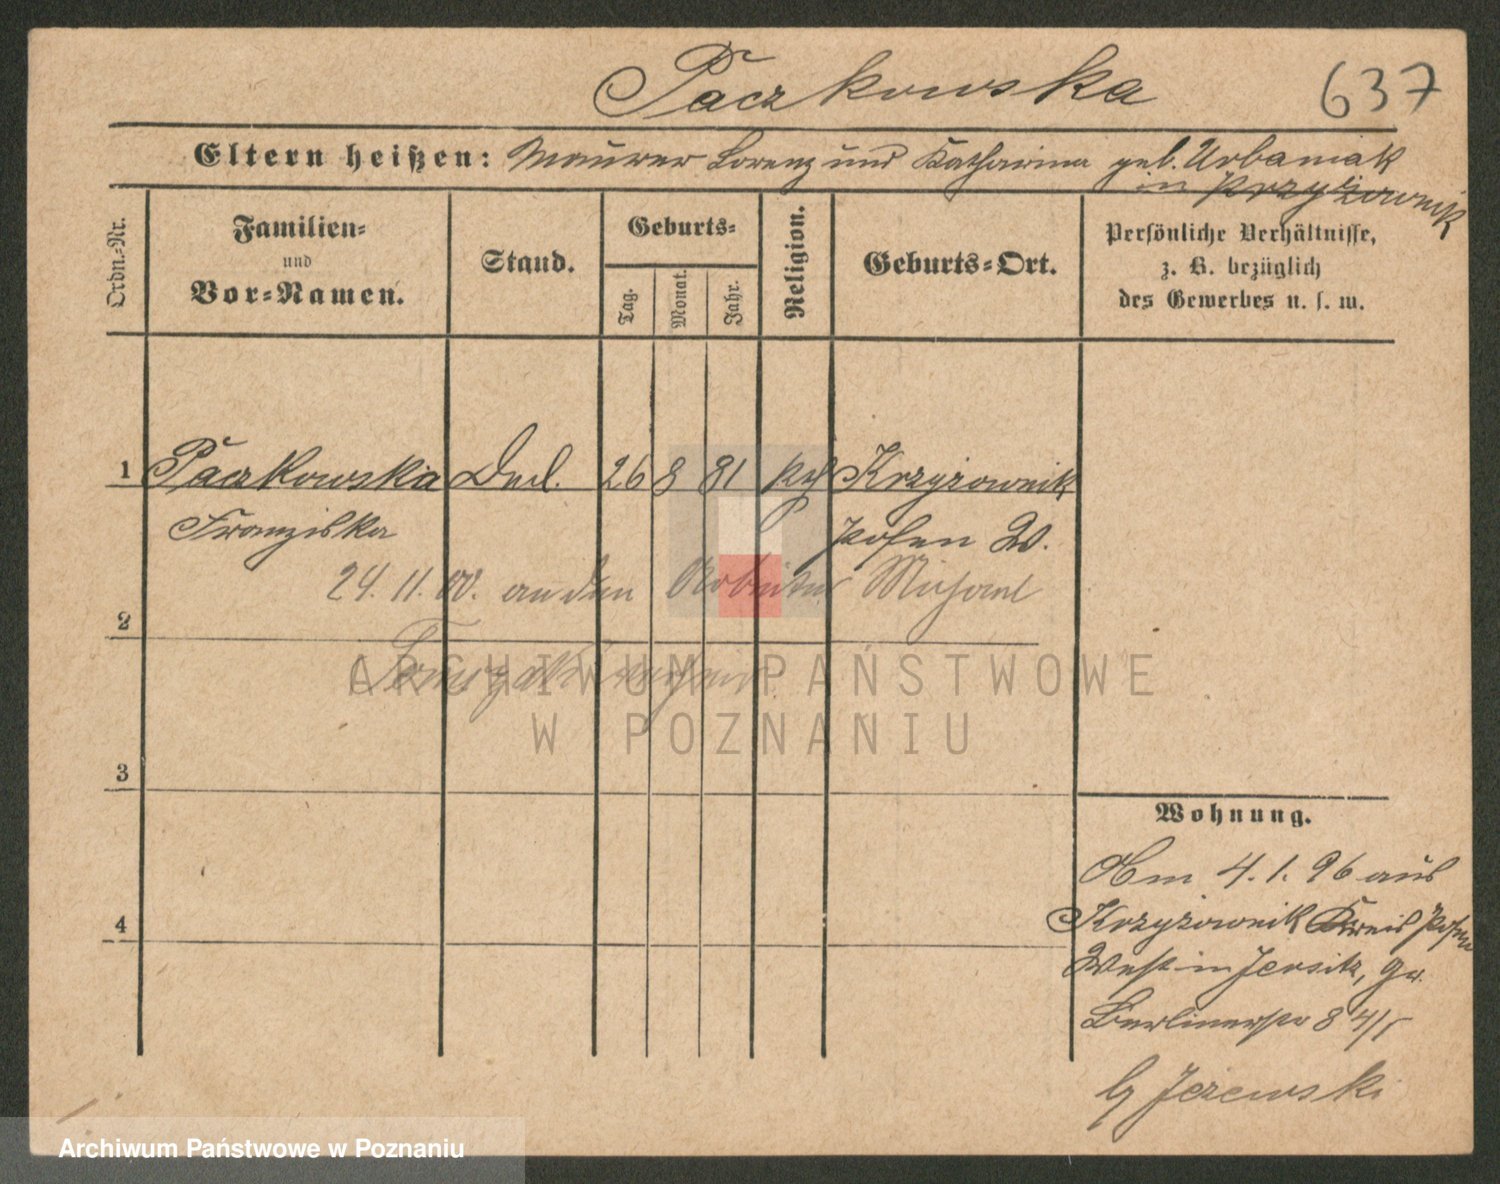 Paczkowska
637
Eltern heißen: Maurer Lorenz und Katharina geb. Urbaniak
in Krzyżownik
Ordn.-Nr.
Familien- und Vor-Namen.
Stand.
Geburts-
Tag.
Monat.
Jahr.
Religion.
Geburts-Ort.
Persönliche Verhältnisse,
z. B. bezüglich
des Gewerbes u. s. w.
1 Paczkowska 26 8 81 kth Krzyżownik
Franziska Posen W.
24. 11. 00. an den Arbeiter Michael
2
3
4
Wohnung.
Am 4. 1. 96 aus
Krzyżownik Kreis Posen
West in Jersitz, Gr.
Berlinerstr 84/I
b/ Jezewski
ARCHIWUM PAŃSTWOWE
W POZNANIU
Archiwum Państwowe w Poznaniu